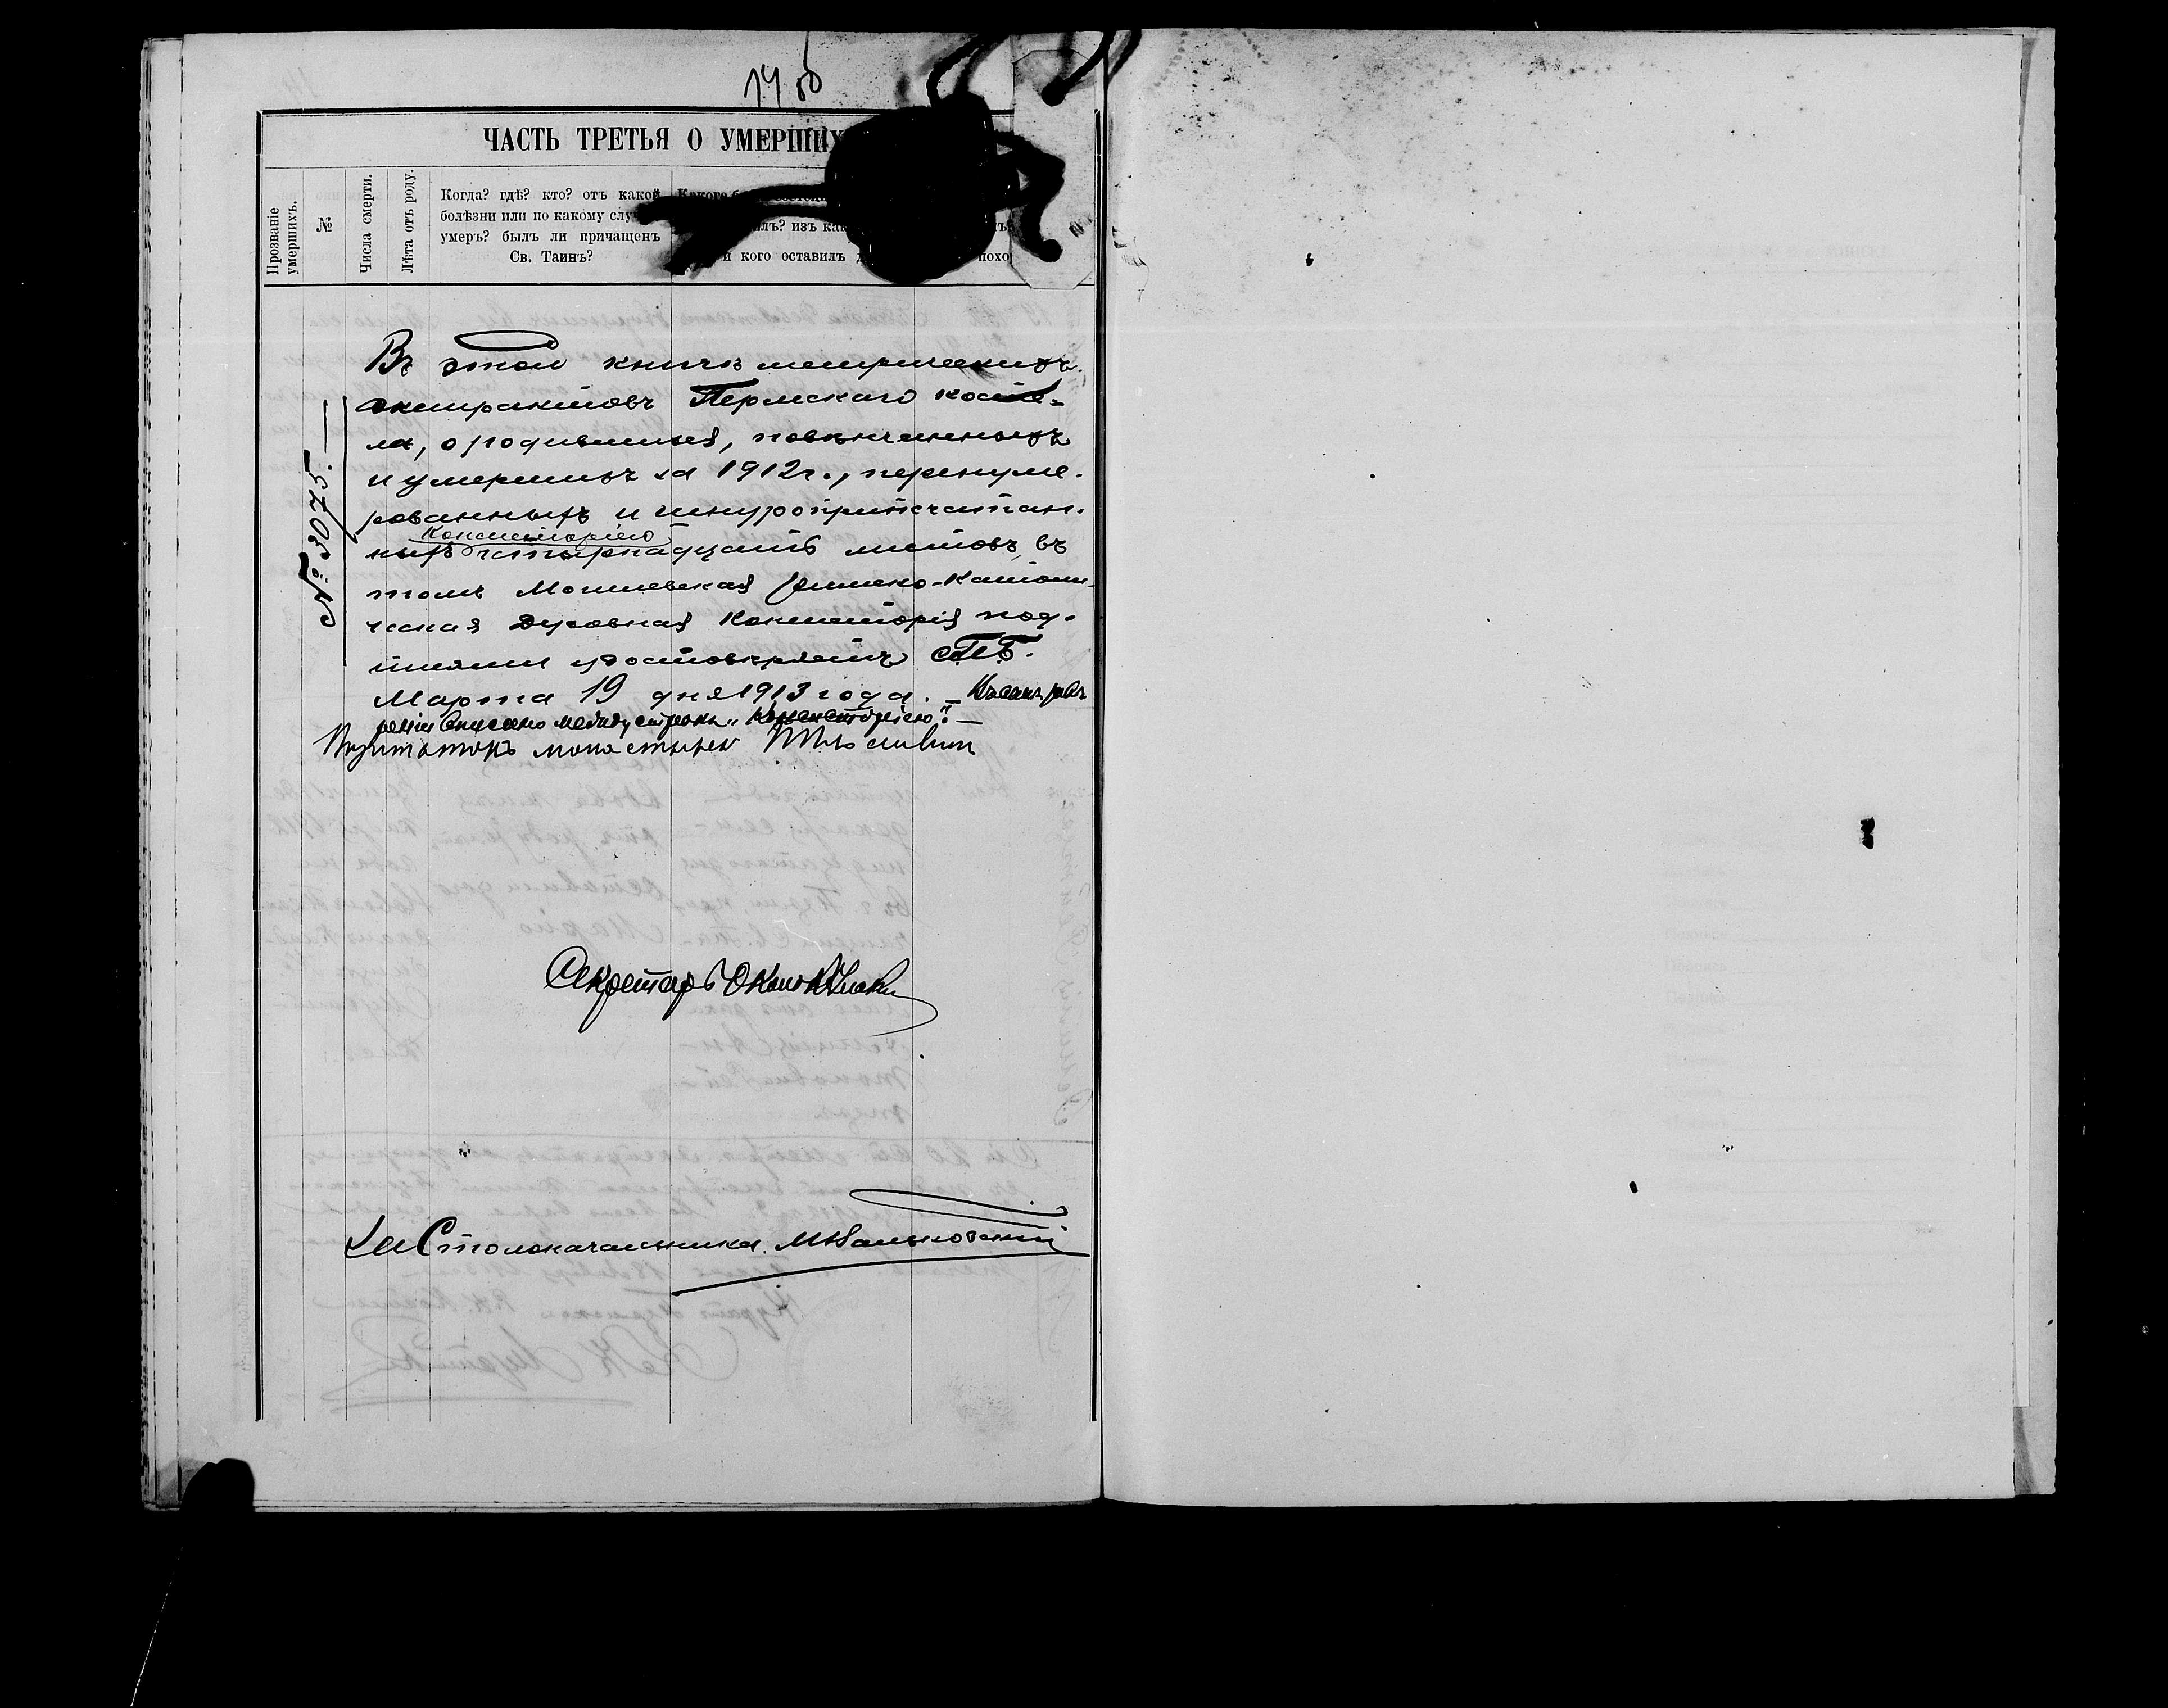 14 об
ЧАСТЬ ТРЕТЬЯ О УМЕРШИХ
Прозваніе умершихъ.
№
Числа смерти.
Лѣта отъ роду.
Когда? гдѣ? кто? отъ какой
болѣзни или по какому
умеръ? былъ ли причащенъ
Св. Таинъ?
Какого
изъ
и кого оставилъ
№ 3075.
Въ этой книгѣ метрическихъ
экстрактовъ Пермскаго косте-
ла, о родившихся, повѣнчанныхъ
и умершихъ за 1912 г., перенуме-
рованныхъ и шнуроприпечатан-
Консисторіею
ныхъ четырнадцать листовъ, въ
томъ Могилевская Римско-Католи-
ческая Духовная Консисторія под-
писями удостовѣряетъ СПБ.
Марта 19 дня 1913 года. —
вписано между строкъ „Консисторіею“. —
Визитаторъ монастырей
Секретарь
За Столоначальника М.